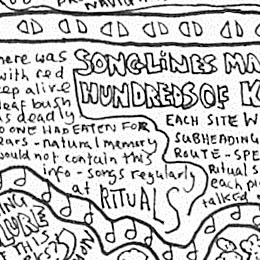 here was
with red
eep alive
leaf bush
as deadly
O ONE HAD EATEN FOR
ears - natural memory
would not contain this
info - songs regularly
at RITUALS
SONGLINES MA
HUNDREDS OF K
EACH SITE W
SUBHEADING
ROUTE - SPE
Ritual s
each pl
talked
ING
LURE
OF THIS